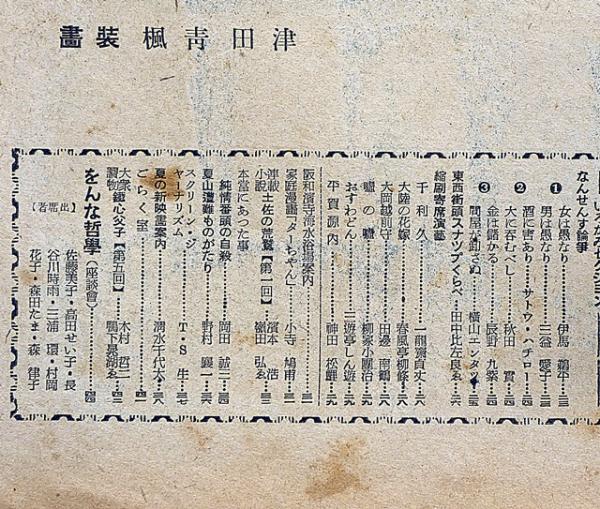 津田青楓 装畫
なんせんす論爭
❶ 女は愚なり……伊馬鵜平
男は愚なり……三益愛子
❷ 酒に害あり…サトウ・ハチロー
大に呑むべし……秋田實
❸ 金は儲かる……辰野九紫
問屋が卸さぬ……橫山エンタツ
東西街頭スナツプくらべ……田中比左良ゑ
縮刷寄席演藝
千利久……一龍齋貞丈
大陸の花嫁……春風亭柳條
大岡越前守……田邊南鶴
嘘の嘘……柳家小團治
おすわどん……三遊亭しん遊
平賀源内……神田松鯉
阪和濱寺海水浴場案内
家庭漫畫「ターちやん」……小寺鳩甫
連載小說 土佐の荒鷲【第二回】……濱本浩 樹田弘ゑ
本當にあつた事
純情番頭の自殺……岡田誠二
夏山遭難ものがたり……野村襄
スクリーン・ジヤーナリズム……T・S生
夏の新映畫案内……淸水千代太
ごらく室
大衆讀物 鐵心父子【第五回】……木村哲二 鴨下晁湖ゑ
をんな哲學(座談會)
【出席者】
佐藤美子・高田せい子・長
谷川時雨・三浦環・村岡
花子・森田たま・森律子